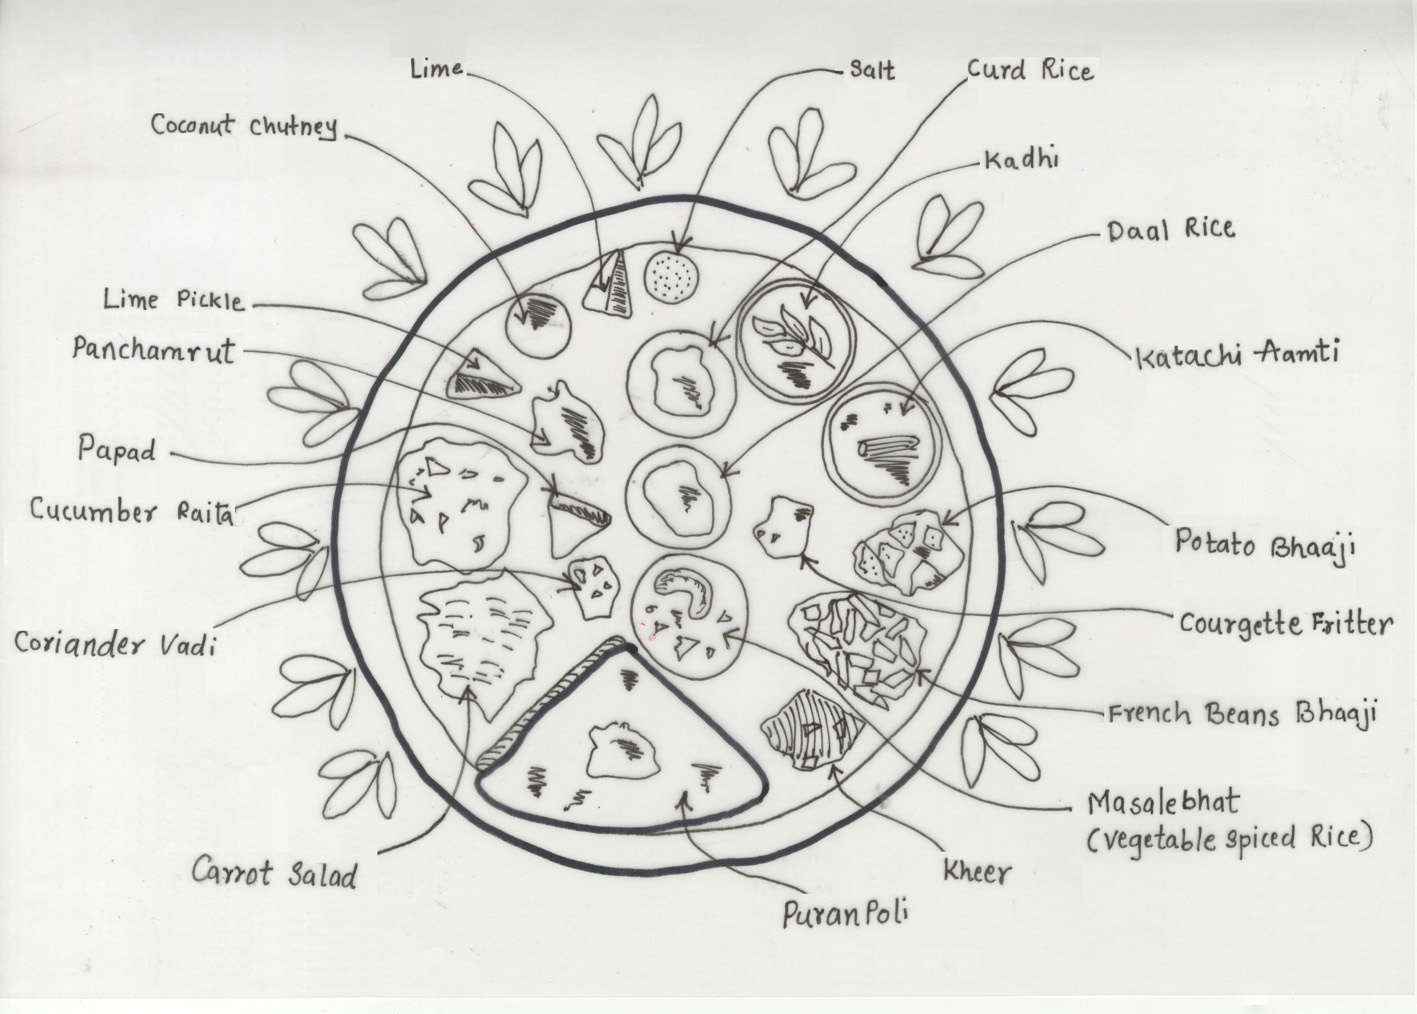 Lime
Salt
Curd Rice
Coconut chutney
Kadhi
Daal Rice
Lime Pickle
Panchamrut
Katachi Aamti
Papad
Cucumber Raita
Potato Bhaaji
Courgette Fritter
Coriander Vadi
French Beans Bhaaji
Masalebhat
(Vegetable spiced Rice)
Carrot Salad
Kheer
Puran Poli